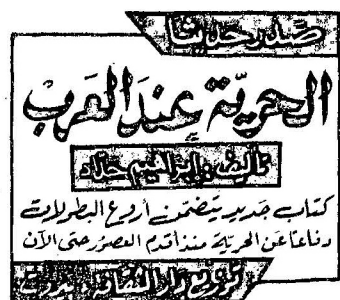 صدر حديثا
الحرية عند العرب
تأليف: إبراهيم حداد
كتاب جديد يتضمن أروع البطولات
دفاعا عن الحرية منذ أقدم العصور حتى الآن
توزيع دار الثقافة بيروت